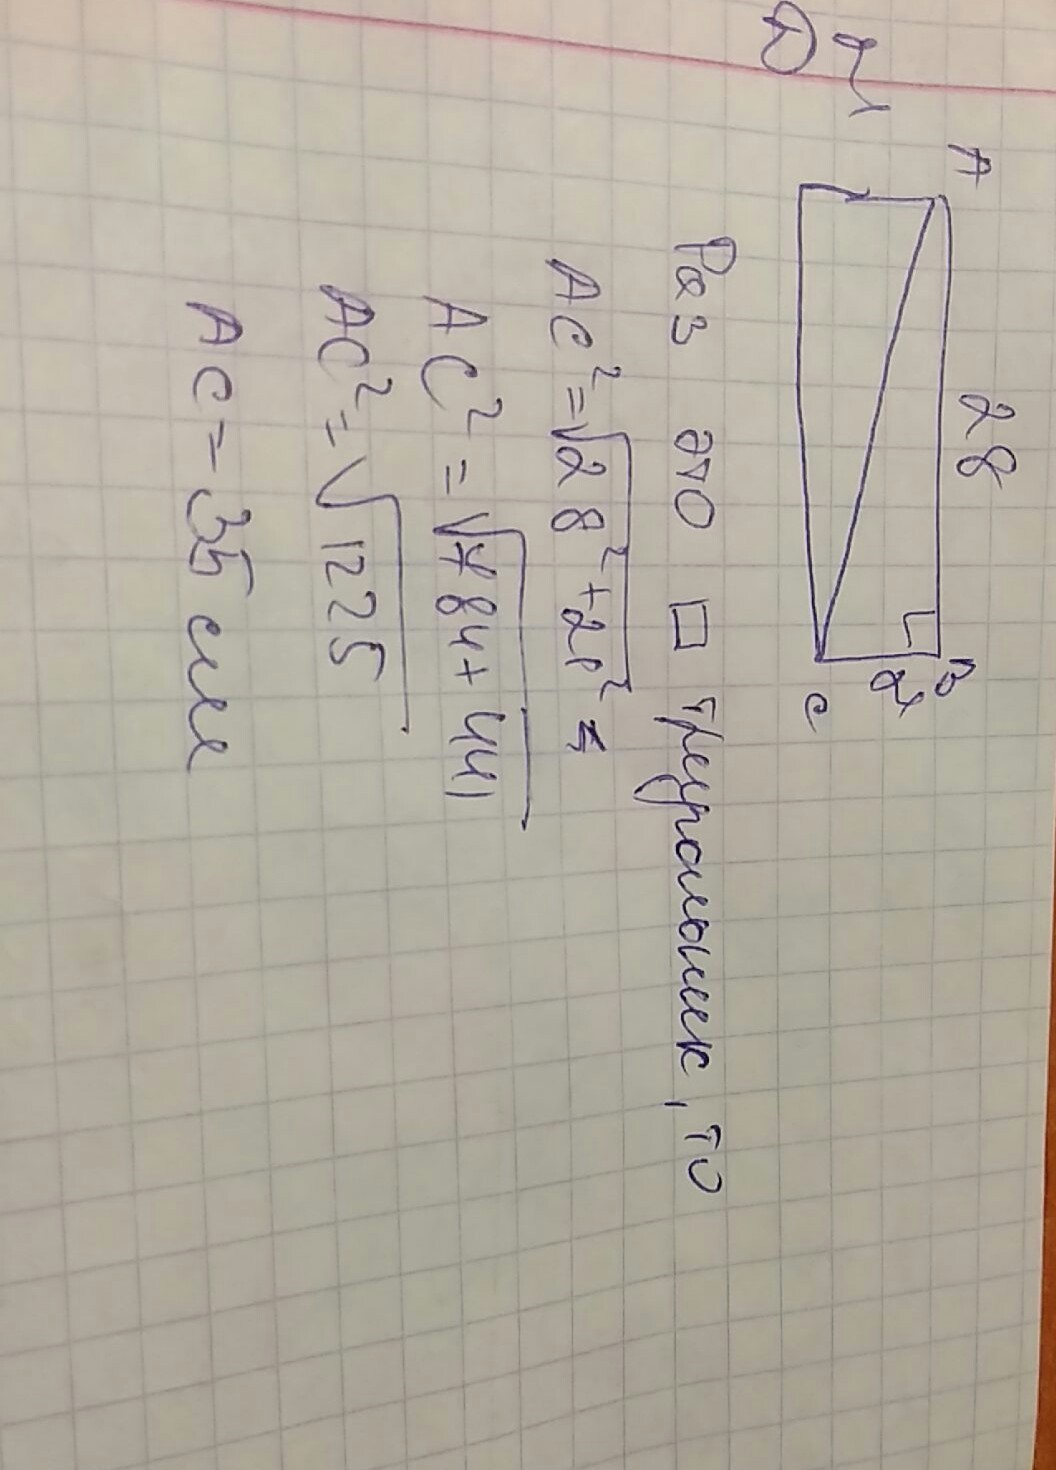 A 28 B
21
C
Раз это □ треугольник, то
AC²=√28²+21²=
AC²=√784+441
AC²=√1225
AC=35 см